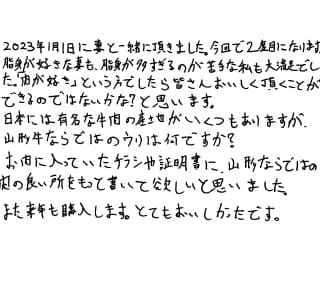 2023年1月1日に妻と一緒に頂きました。今回で2度目になります
脂身が好きな妻も、脂身が多すぎるのが苦手な私も大満足でし
た。「肉が好き」という方でしたら皆さんおいしく頂くことが
できるのではないかな？と思います。
日本には有名な牛肉の産地がいくつもありますが、
山形牛ならではのウリは何ですか？
お肉に入っていたチラシや証明書に、山形ならではの
肉の良い所をもっと書いて欲しいと思いました。
また来年も購入します。とてもおいしかったです。